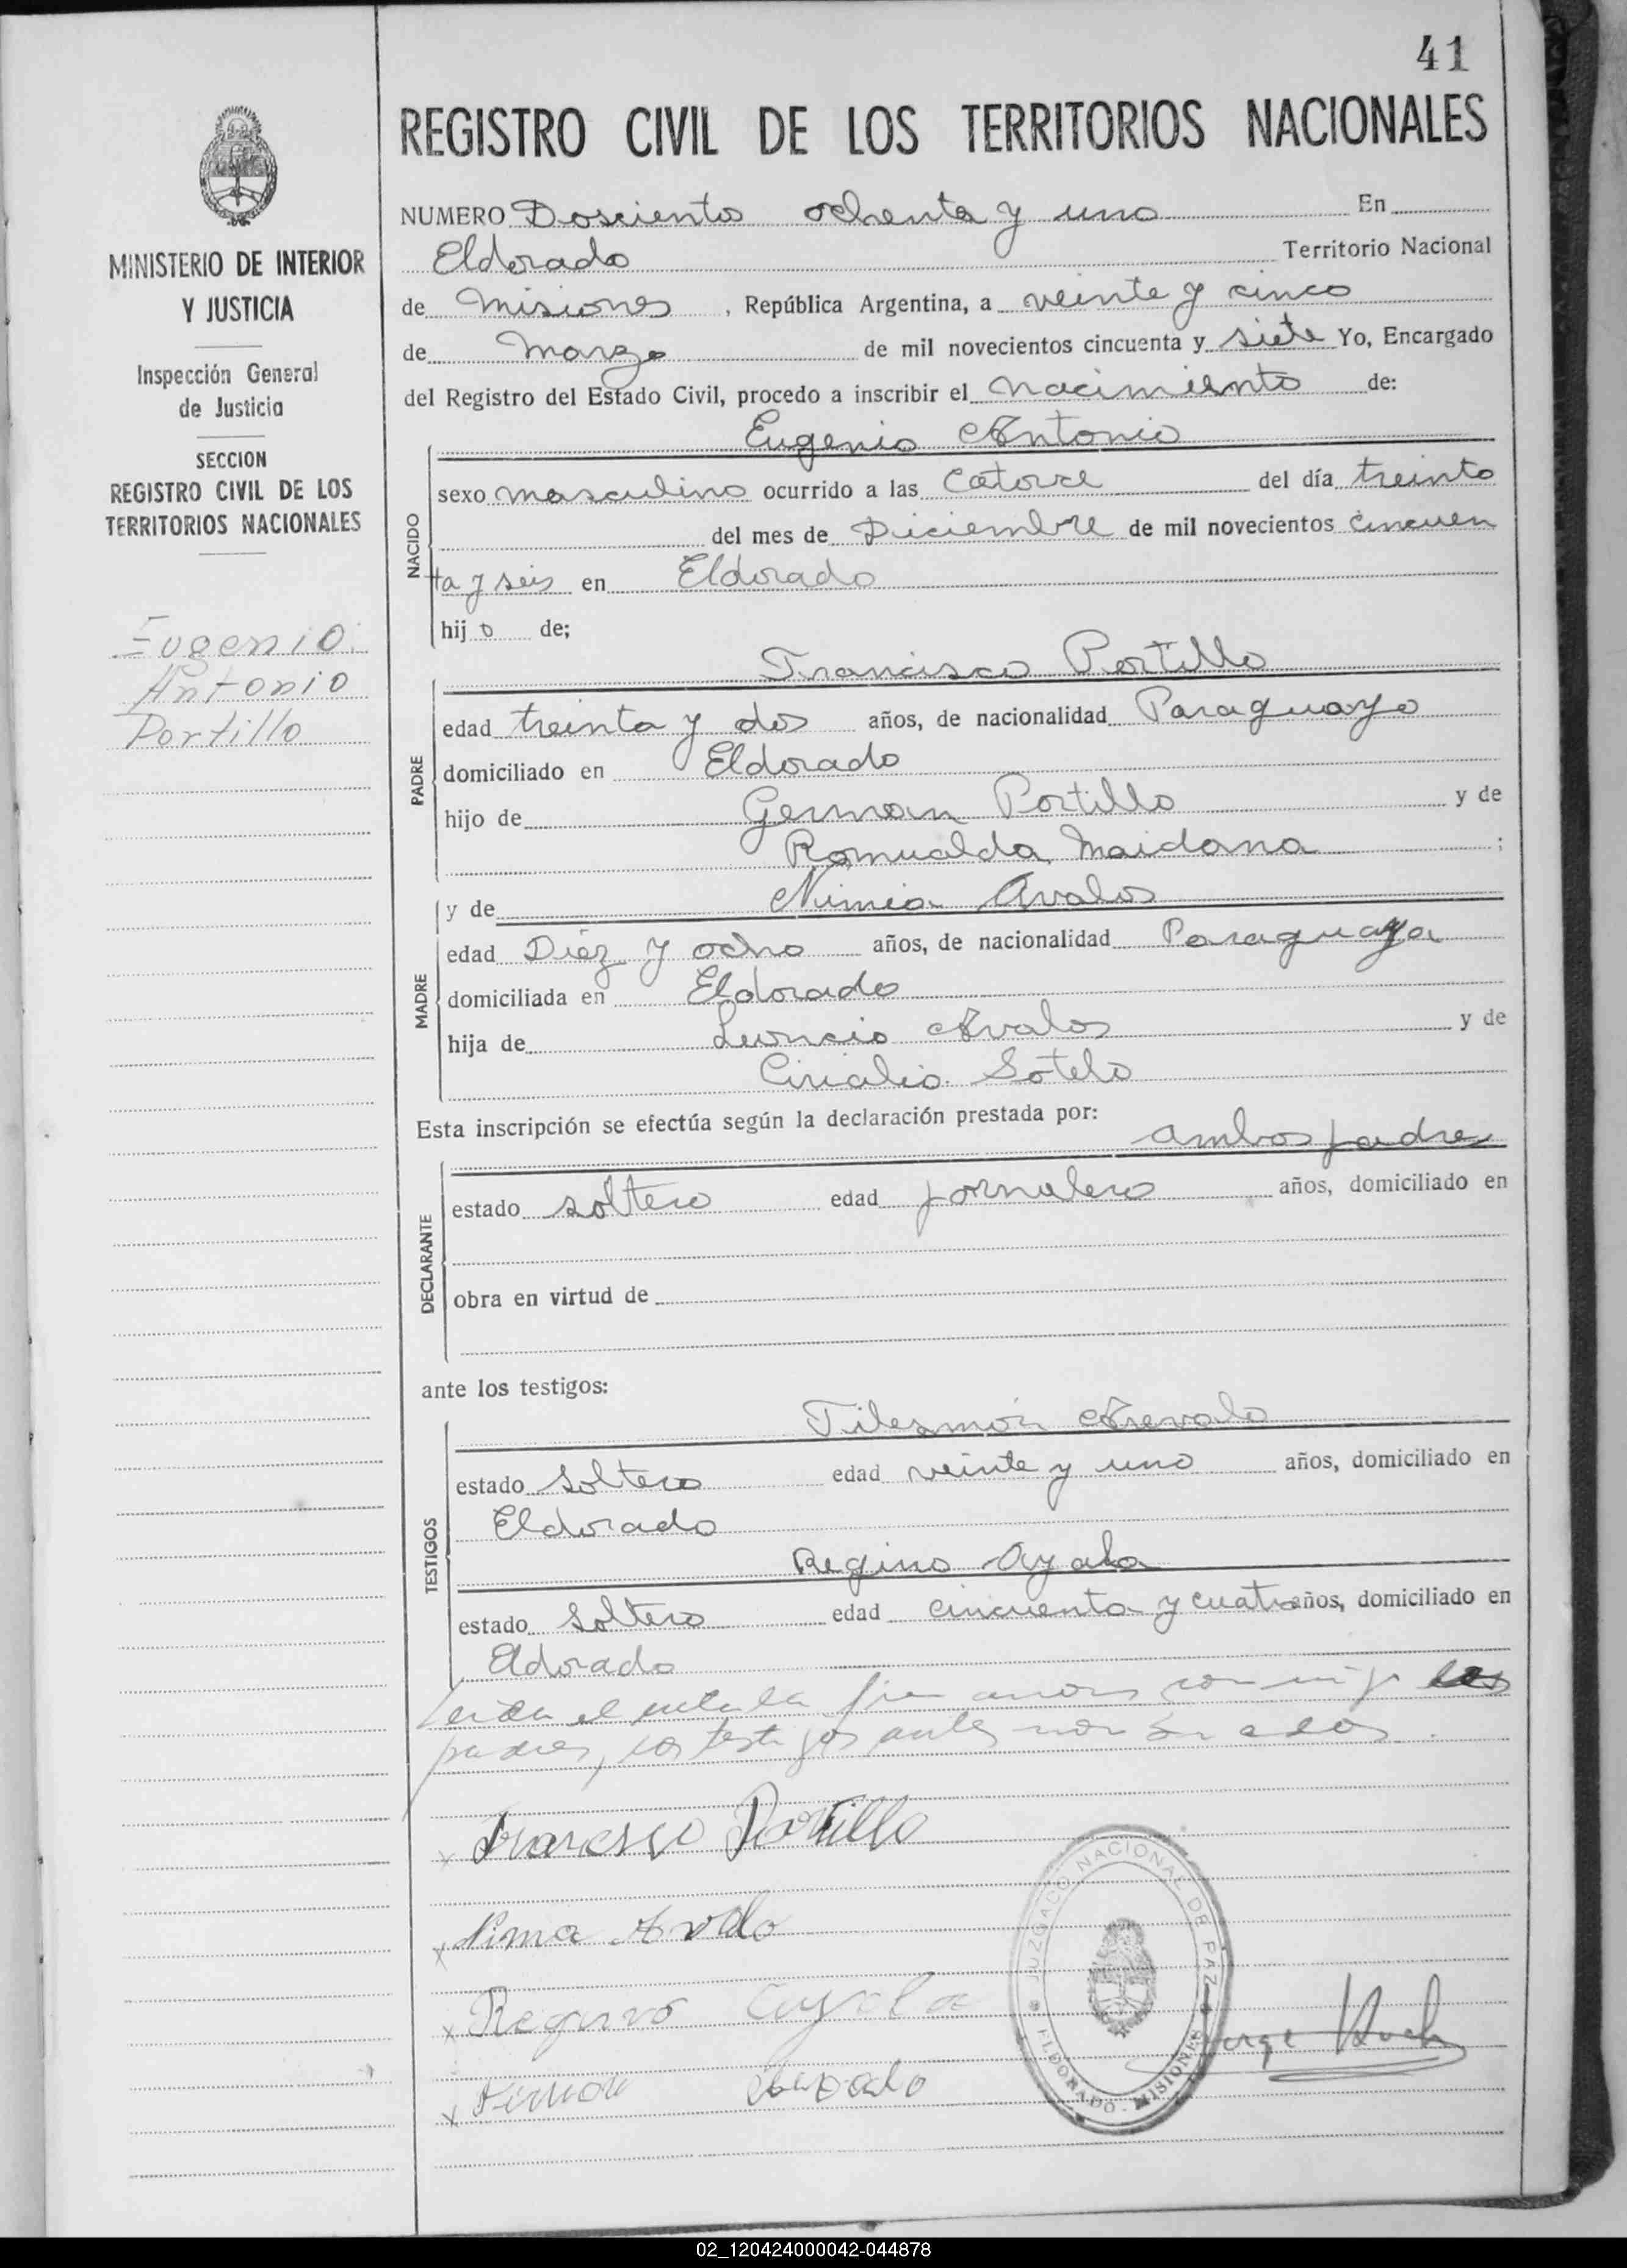 41
REGISTRO CIVIL DE LOS TERRITORIOS NACIONALES
MINISTERIO DE INTERIOR
Y JUSTICIA
Inspección General
de Justicia
SECCION
REGISTRO CIVIL DE LOS
TERRITORIOS NACIONALES
Eugenio
Antonio
Portillo
NUMERO Dosciento ochenta y uno En
Eldorado Territorio Nacional
de Misiones, República Argentina, a veinte y cinco
de Marzo de mil novecientos cincuenta y siete Yo, Encargado
del Registro del Estado Civil, procedo a inscribir el nacimiento de:
NACIDO
Eugenio Antonio
sexo masculino ocurrido a las Catorce del día treinta
del mes de Diciembre de mil novecientos cincuen
ta y seis en Eldorado
hijo de;
PADRE
Francisco Portillo
edad treinta y dos años, de nacionalidad Paraguayo
domiciliado en Eldorado
hijo de German Portillo y de
Romualda Maidana ;
MADRE
y de Nimia Avalos
edad Diez y ocho años, de nacionalidad Paraguaya
domiciliada en Eldorado
hija de Leoncio Avalos y de
Sotelo
Esta inscripción se efectúa según la declaración prestada por: ambos padres
DECLARANTE
estado soltero edad jornalero años, domiciliado en
obra en virtud de
ante los testigos:
TESTIGOS
Arevalo
estado Soltero edad veinte y uno años, domiciliado en
Eldorado
Regino Ayala
estado Soltero edad cincuenta y cuatro años, domiciliado en
Eldorado
Leida el acta la conmigo los
padres, los testigos antes nombrados.
x Francisco Portillo
x Nima Avalo
x Regino Ayala
x
JUZGADO NACIONAL DE PAZ
ELDORADO - MISIONES
Jorge
02_120424000042-044878